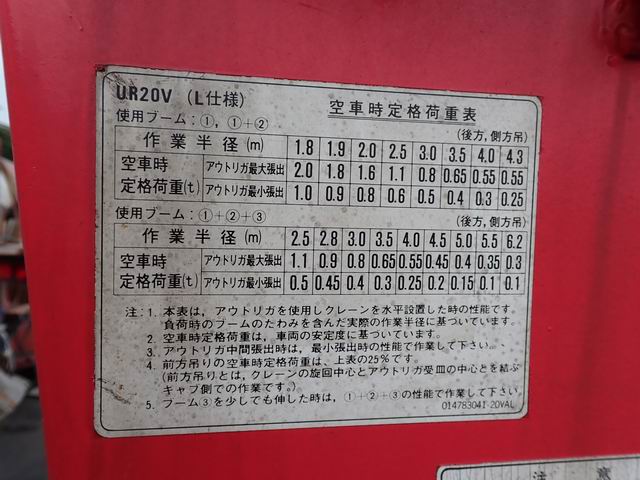 UR20V (L仕様) 空車時定格荷重表
使用ブーム:①, ①+② (後方, 側方吊)
作業半径(m) 1.8 1.9 2.0 2.5 3.0 3.5 4.0 4.3
空車時 アウトリガ最大張出 2.0 1.8 1.6 1.1 0.8 0.65 0.55 0.55
定格荷重(t) アウトリガ最小張出 1.0 0.9 0.8 0.6 0.5 0.4 0.3 0.25
使用ブーム:①+②+③ (後方, 側方吊)
作業半径(m) 2.5 2.8 3.0 3.5 4.0 4.5 5.0 5.5 6.2
空車時 アウトリガ最大張出 1.1 0.9 0.8 0.65 0.55 0.45 0.4 0.35 0.3
定格荷重(t) アウトリガ最小張出 0.5 0.45 0.4 0.3 0.25 0.2 0.15 0.1 0.1
注:1. 本表は, アウトリガを使用しクレーンを水平設置した時の性能です.
負荷時のブームのたわみを含んだ実際の作業半径に基づいています.
2. 空車時定格荷重は, 車両の安定度に基づいています.
3. アウトリガ中間張出時は, 最小張出時の性能で作業して下さい.
4. 前方吊りの空車時定格荷重は, 上表の25%です.
(前方吊りとは, クレーンの旋回中心とアウトリガ受皿の中心とを結ぶ
キャブ側での作業です.)
5. ブーム③を少しでも伸した時は, ①+②+③の性能で作業して下さい.
014783041-20VAL
注意